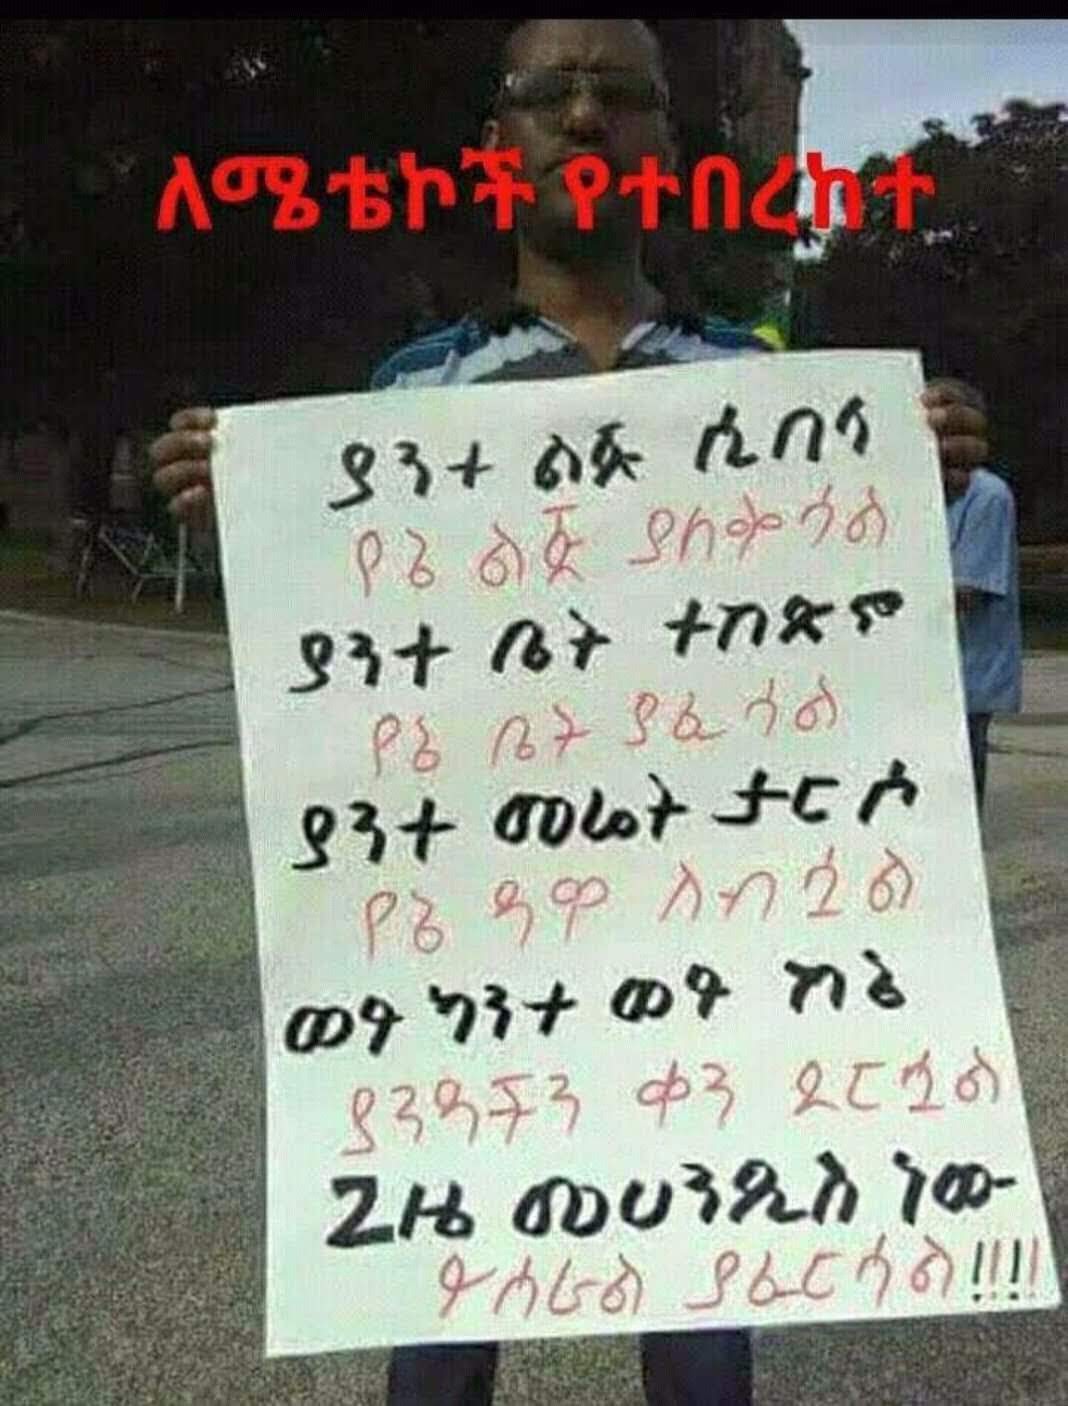 ለሜቴኮች የተበረከተ
ያንተ ልጅ ሲበላ
የኔ ልጅ ያለቅሳል
ያንተ ቤት ተከድኖ
የኔ ቤት ያፈሳል
ያንተ መሬት ታርሶ
የኔ ዳዋ ለብሷል
ወይ ካንተ ወይ ከኔ
ያንዳችን ቀን ደርሷል
ጊዜ መሀንዲስ ነው
ይሰራል ያፈርሳል!!!!